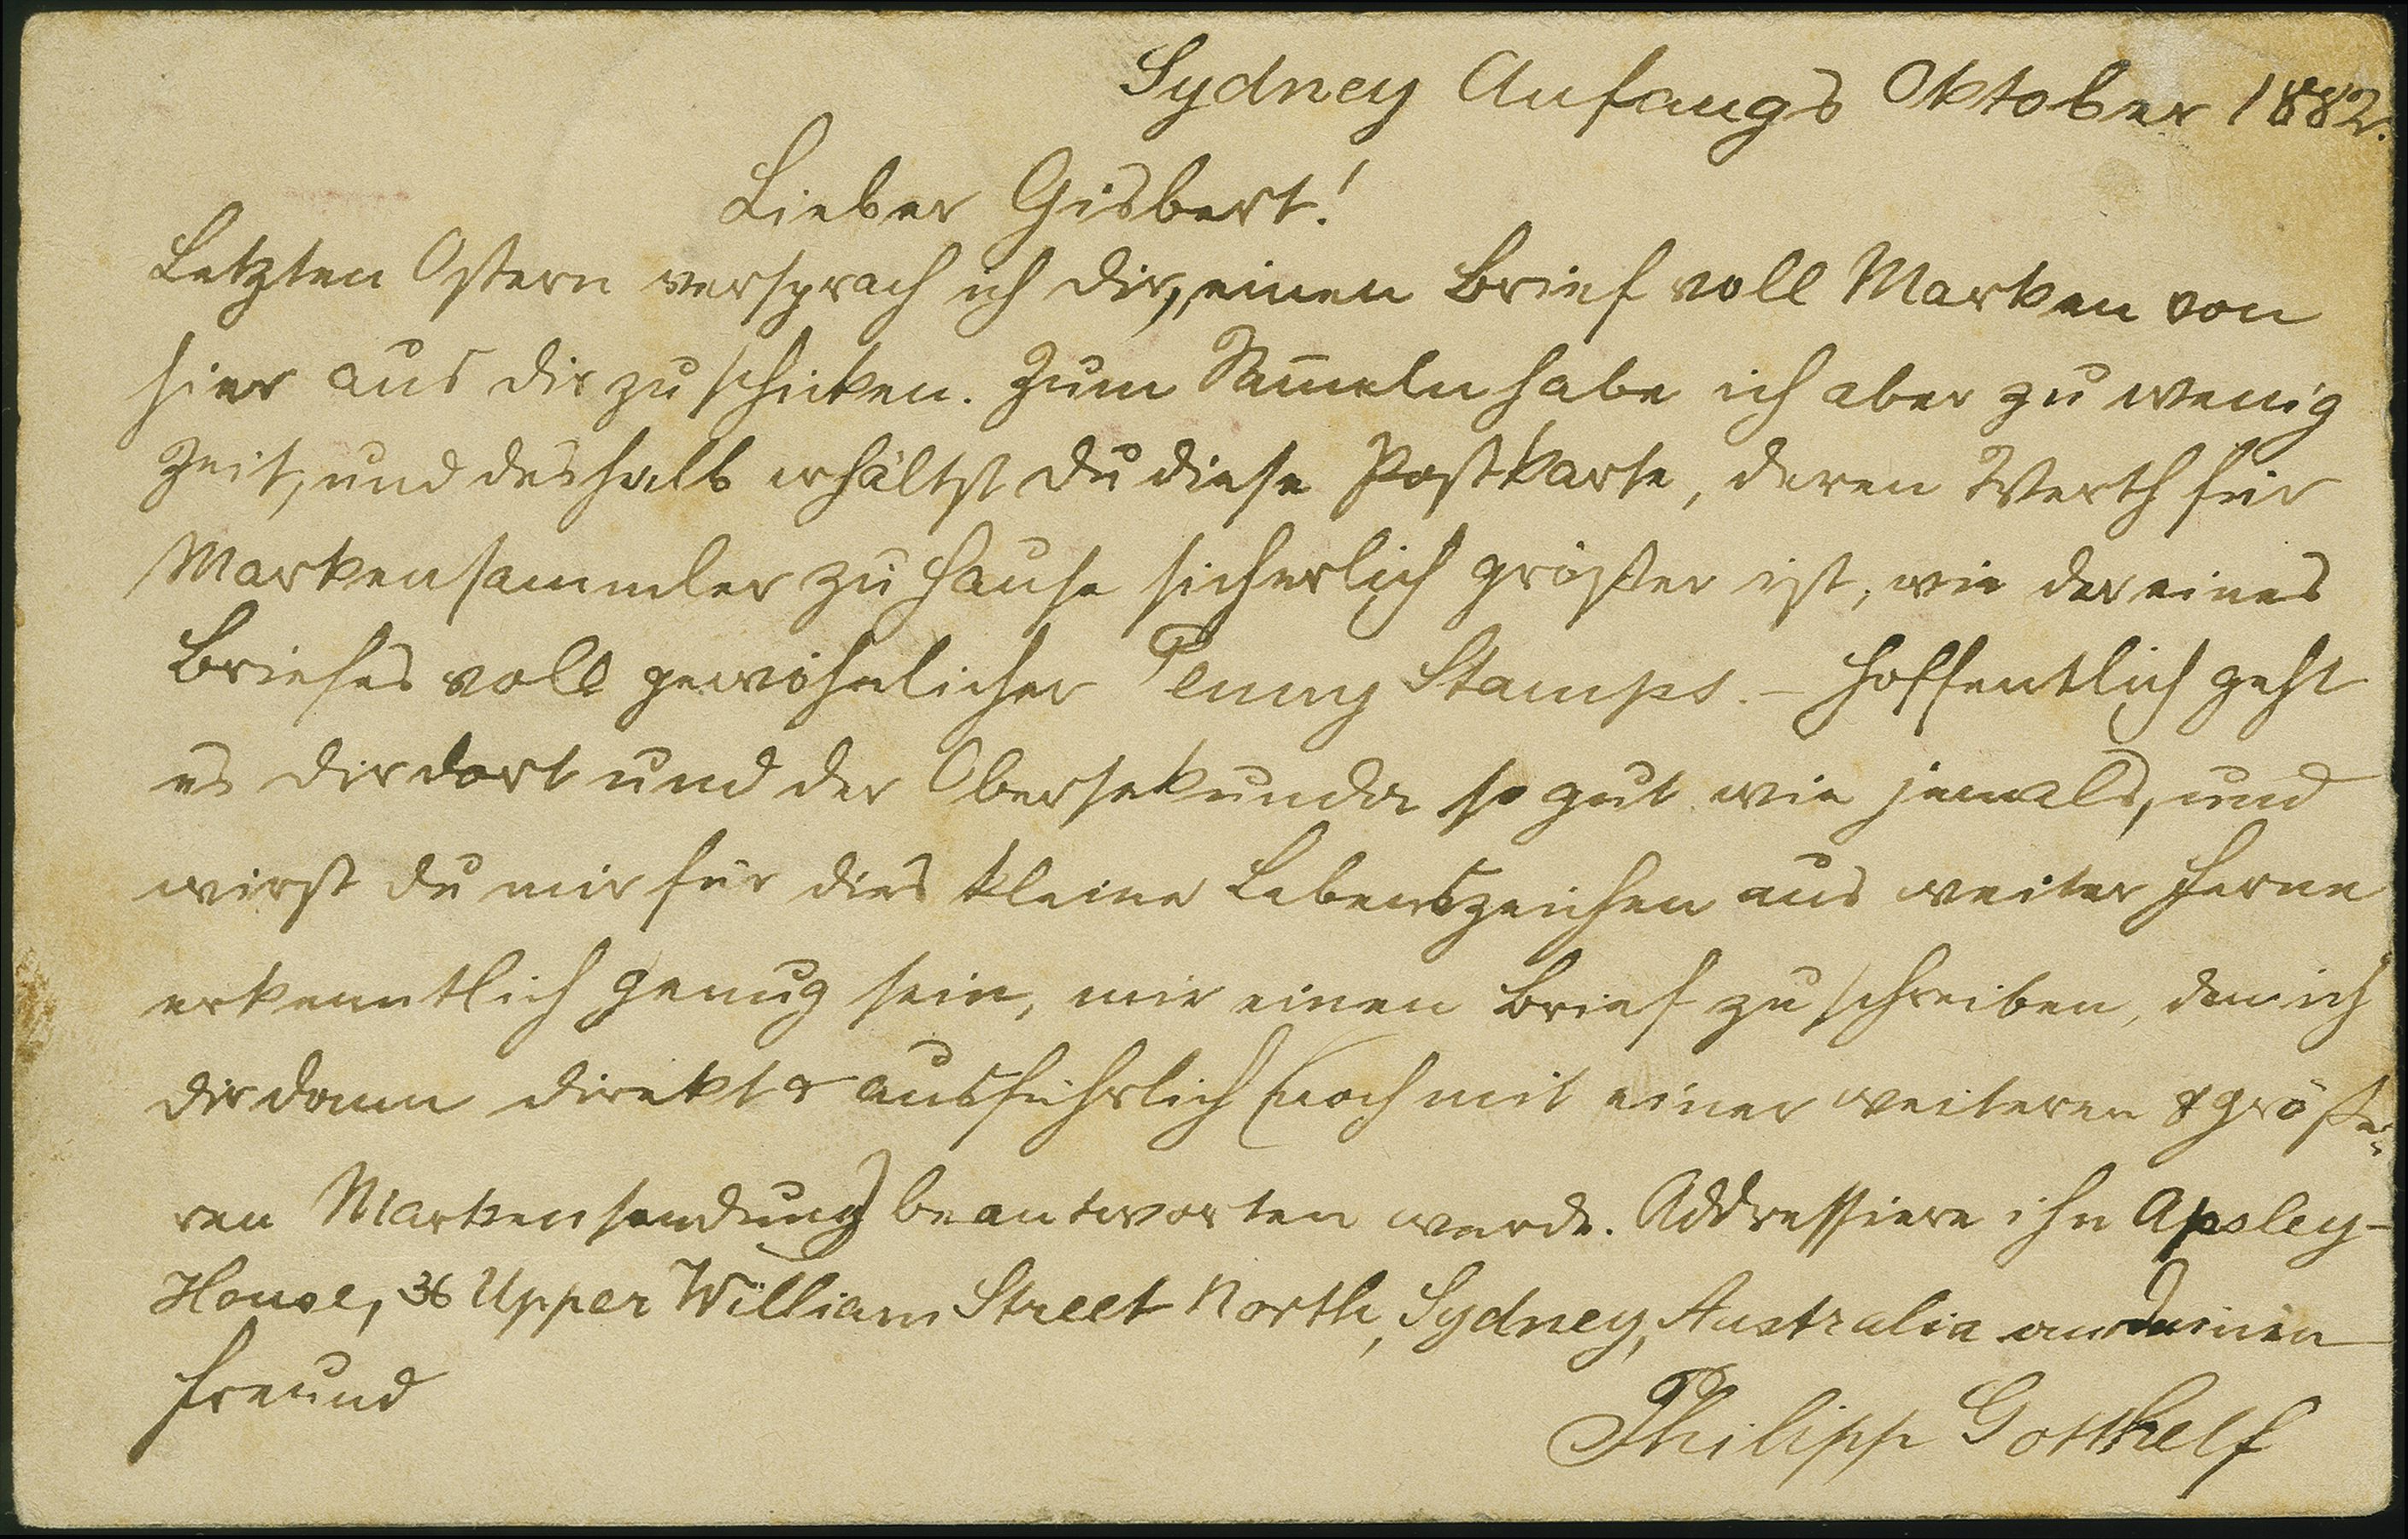 Sydney Anfangs Oktober 1882.
Lieber Gisbert!
Letzten Ostern versprach ich dir, einen Brief voll Marken von
hier aus dir zu schicken. Zum Sam̄eln habe ich aber zu wenig
Zeit, und deshalb erhältst du diese Postkarte, deren Werth für
Markensammler zu Hause sicherlich größer ist, wie der eines
Briefes voll gewöhnlicher Penny Stamps. – Hoffentlich geht
es dir dort und der Obersekunda so gut wie jemals, und
wirst du mir für dies kleine Lebenszeichen aus weiter Ferne
erkenntlich genug sein, mir einen Brief zu schreiben, den ich
dir dann direkt & ausführlich (noch mit einer weiteren & größe-
ren Markensendung) beantworten werde. Addressiere ihn Apsley-
House, 36 Upper William Street North, Sydney, Australia an deinen
Freund
Philipp Gotthelf